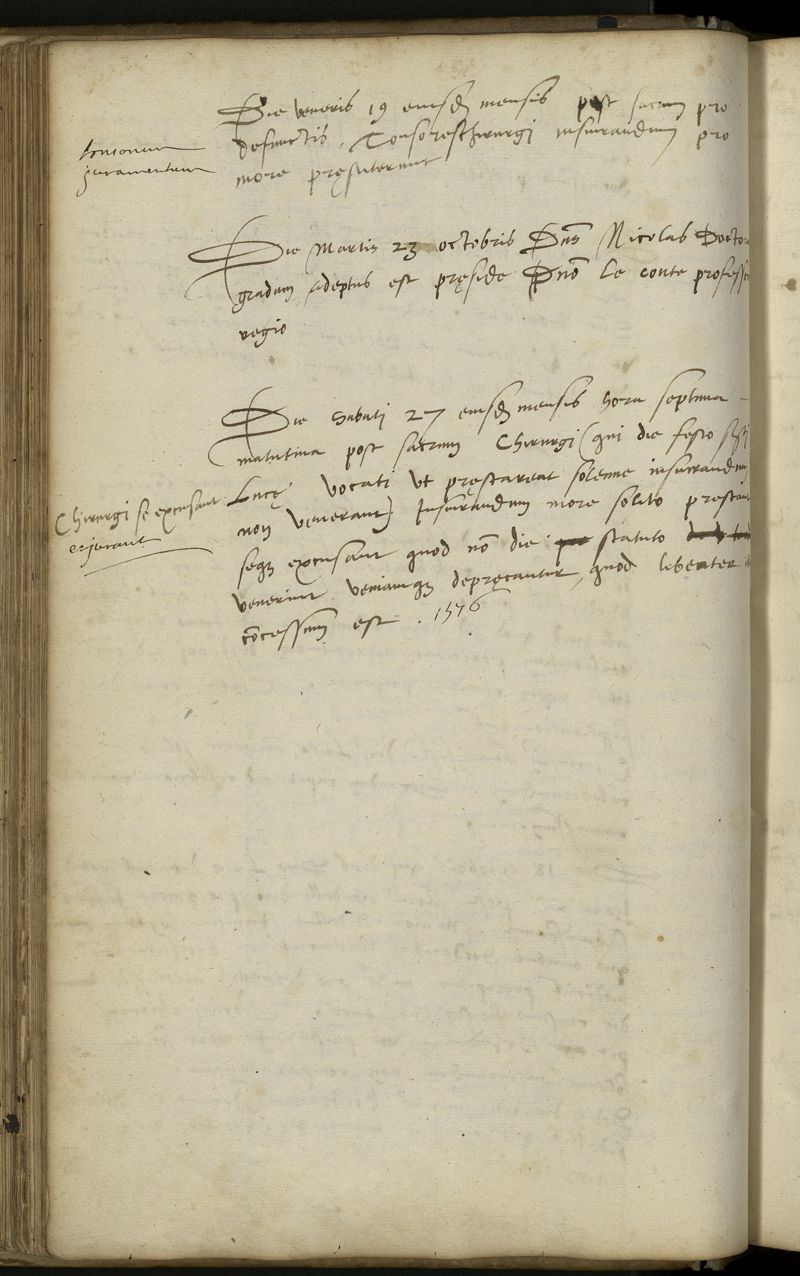 Die veneris 19 eiusd mensis post sacrum pro
defunctis, Tonsores chirurgi insiurandum pro
more pręstiterunt
tonsorum
juramentum
Die Martis 23 octobris Dns Nicolas Doctor
gradum Adeptus est pręside Dno le conte professo
regio
Die sabati 27 eiusd mensis hora septima
matutina post sacrum Chirurgi (qui die festo
Lucę vocati ut pręstarent solenne insiurandum
non venerant) Insiurandum more solito prestant
seqz excusant quod nō die statuto
venerint veniamqz depręcantur, quod libenter
cōcessum est. 1576
Chirurgi se excusant
et jurant